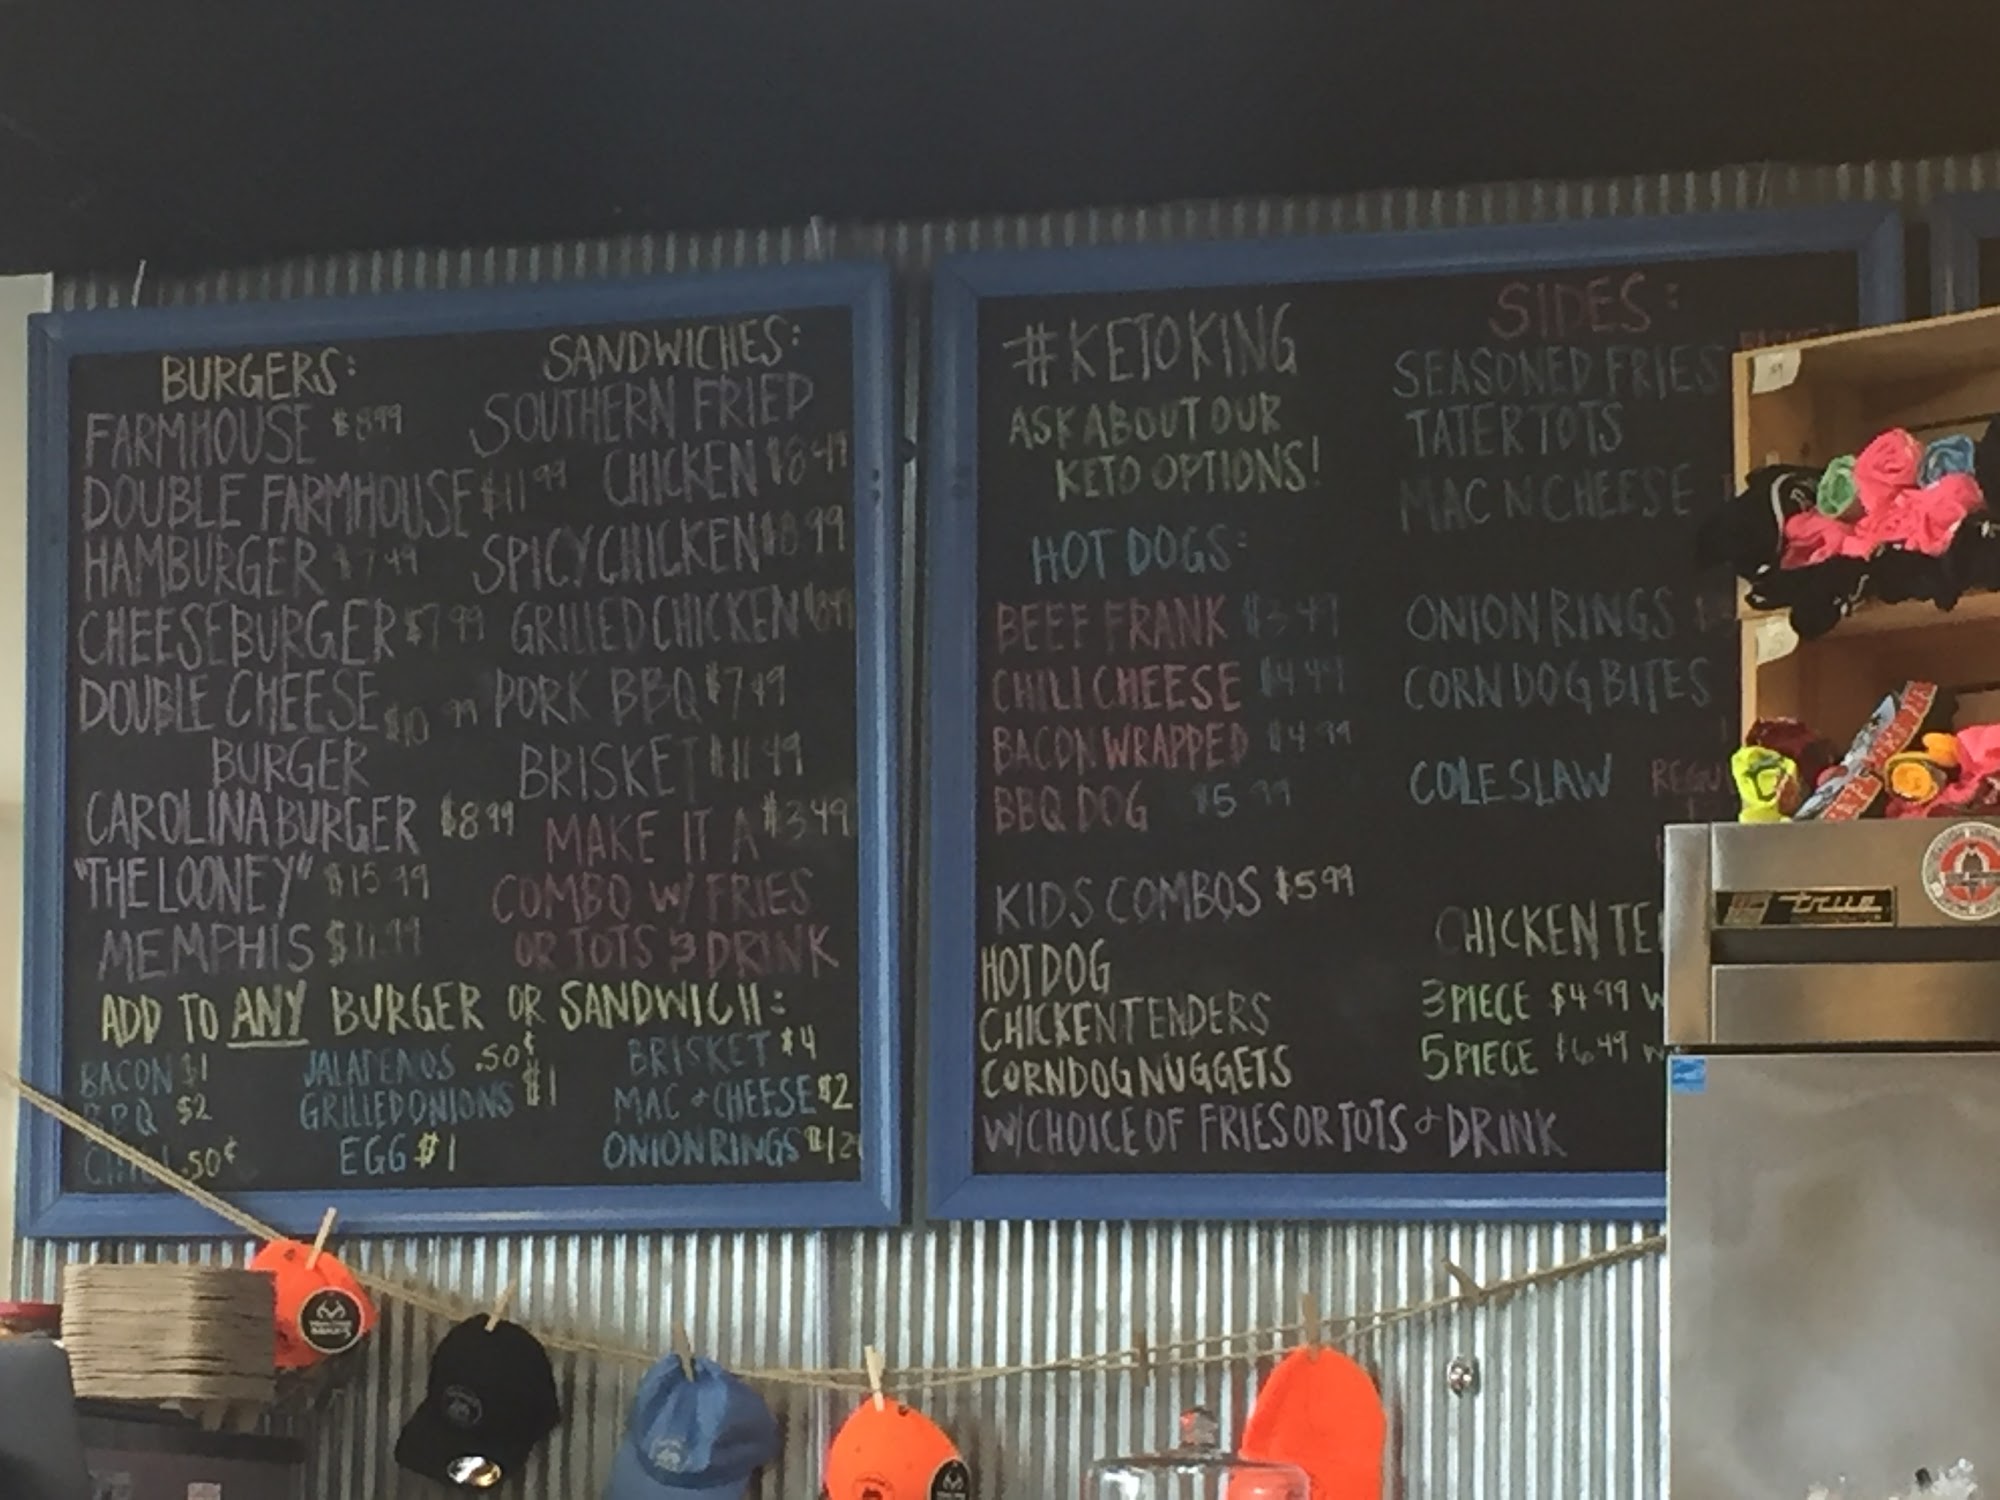 BURGERS:
FARMHOUSE $8.99
DOUBLE FARMHOUSE $11.99
HAMBURGER $7.49
CHEESEBURGER $7.99
DOUBLE CHEESE $10.99
BURGER
CAROLINA BURGER $8.99
"THE LOONEY" $15.99
MEMPHIS $11.99
SANDWICHES:
SOUTHERN FRIED
CHICKEN $8.49
SPICY CHICKEN $8.99
GRILLED CHICKEN
PORK BBQ $7.49
BRISKET $11.49
MAKE IT A $3.49
COMBO W/ FRIES
OR TOTS & DRINK
ADD TO ANY BURGER OR SANDWICH:
BACON $1
BBQ $2
CHILI .50¢
JALAPENOS .50¢
GRILLED ONIONS $1
EGG $1
BRISKET $4
MAC & CHEESE $2
ONION RINGS
#KETOKING
ASK ABOUT OUR
KETO OPTIONS!
HOT DOGS:
BEEF FRANK $3.49
CHILI CHEESE $4.49
BACON WRAPPED $4.99
BBQ DOG $5.99
KIDS COMBOS $5.99
HOT DOG
CHICKEN TENDERS
CORNDOG NUGGETS
W/ CHOICE OF FRIES OR TOTS & DRINK
SIDES:
SEASONED FRIES
TATER TOTS
MAC N CHEESE
ONION RINGS
CORN DOG BITES
COLESLAW
CHICKEN TE
3 PIECE $4.99 W
5 PIECE $6.49 W
true